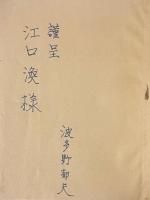 謹呈
江口渙様
波多野郁夫